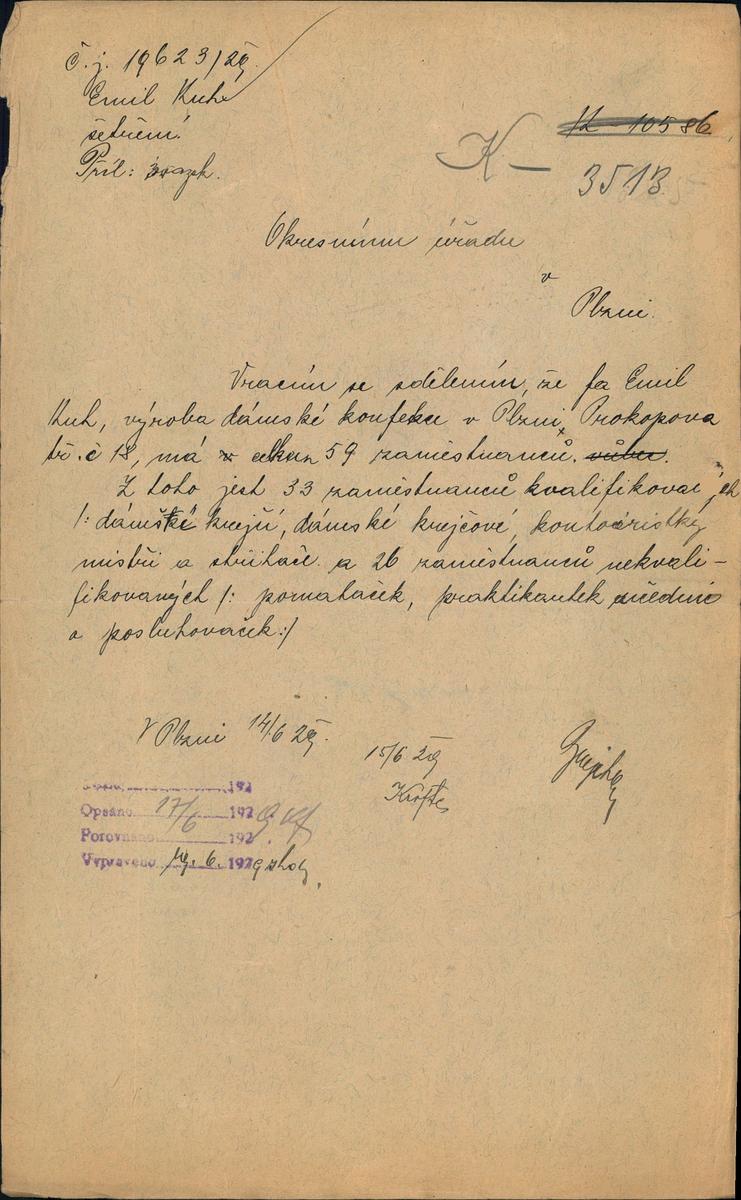 č. j. 19623/29.
Emil Kuh
šetření.
Příl: svazek.
12 - 10586
K - 3513
Okresnímu úřadu
v
Plzni.
Vracím se sdělením, že fa Emil
Kuh, výroba dámské konfekce v Plzni, Prokopova
tř. č 18, má v celku 59 zaměstnanců. vůbec.
Z toho jest 33 zaměstnanců kvalifikovaných
/: dámské krejčí, dámské krejčové, kontoristky
mistři a střihače. a 26 zaměstnanců nekvali-
fikovaných /: pomahaček, praktikantek učednic
a posluhovaček:/
V Plzni 14/6 29.
15/6 29
192
Opsáno 17/6 1929
Porovnáno 192
Vypraveno 19. 6. 1929